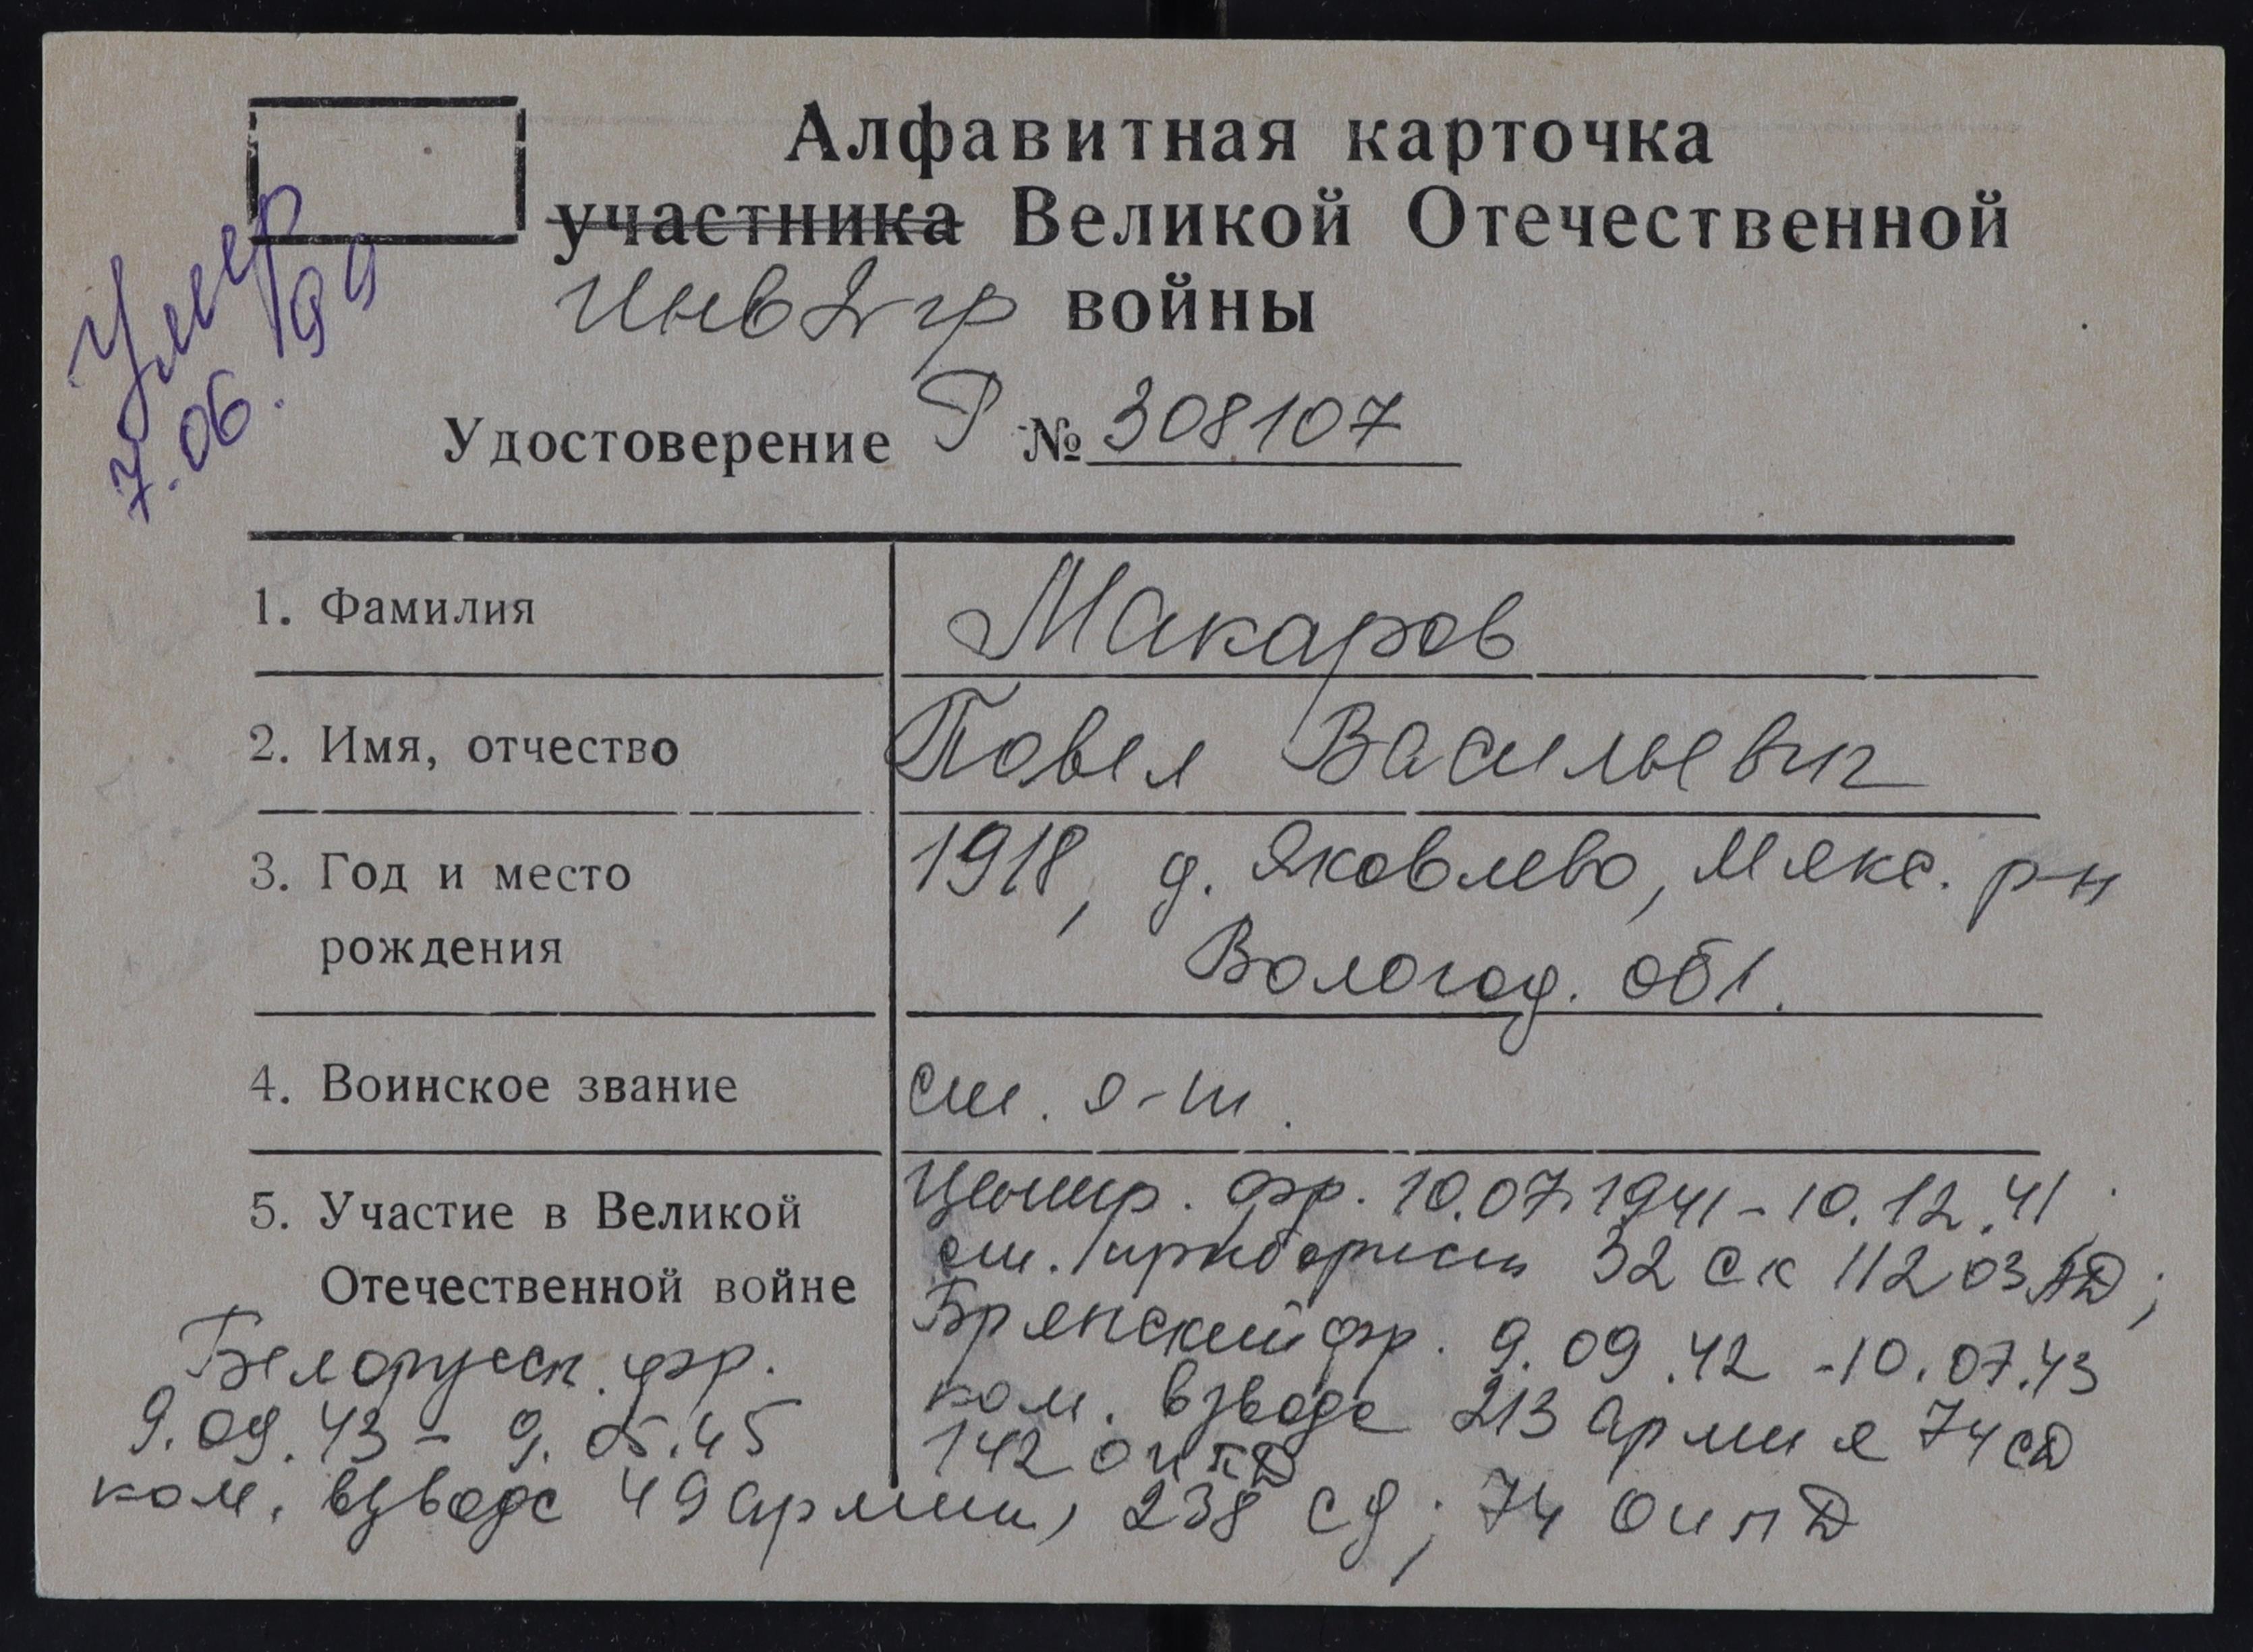 Алфавитная карточка
участника Великой Отечественной
Инв 2 гр войны
Умер
7.06.99
Удостоверение Р № 308107
1. Фамилия Макаров
2. Имя, отчество Павел Васильевич
3. Год и место 1918, д. Яковлево, Мякс. р-н
рождения Вологод. обл.
4. Воинское звание с-т.
5. Участие в Великой Центр. фр. 10.07.1941 - 10.12.41
Отечественной войне 32 ск 112 ОЗАД;
Брянский фр. 9.09.42 - 10.07.43
ком. взвода армия 74 сд
142 оиптд
Белорусск. фр.
9.09.43 - 9.05.45
ком. взвода 49 армии, 238 сд; 74 оипд